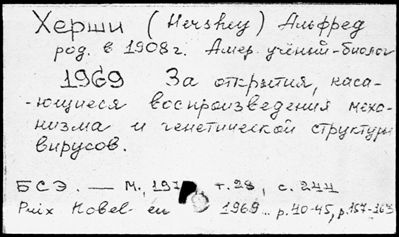 Херши (Hershey) Альфред
род. в 1908 г. Амер. учёный-биолог
1969 За открытия, каса-
-ющиеся воспроизведения меха-
низма и генетической структуры
вирусов.
БСЭ. — М., 197 т. 28, с. 244
Prix Nobel en 1969... p. 40-45, p. 157-163